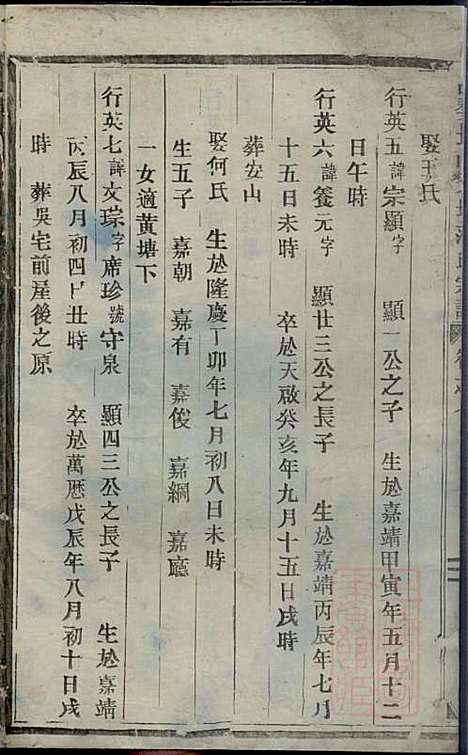 娶王氏
行英五諱宗顯字 顯一公之子 生於嘉靖甲寅年五月十二
日午時
行英六諱養元字 顯廿三公之長子 生於嘉靖丙辰年七月
十五日未時 卒於天啟癸亥年九月十五日戌時
葬安山
娶何氏 生於隆慶丁卯年七月初八日未時
生五子 嘉朝 嘉有 嘉俊 嘉綱 嘉廳
一女適黃塘下
行英七諱文琮字席珍號守泉 顯四三公之長子 生於嘉靖
丙辰八月初四日丑時 卒於萬厯戊辰年八月初十日戌
時 葬吳宅前屋後之原